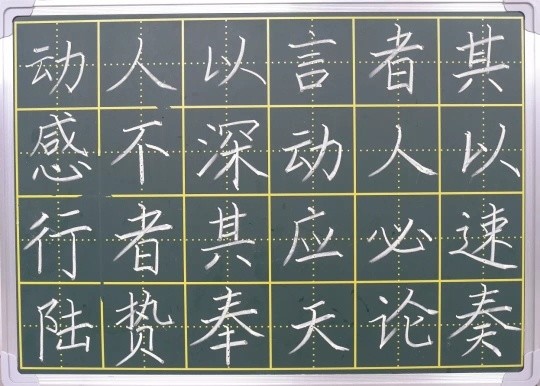 动人以言者其
感不深动人以
行者其应必速
陆贽奉天论奏